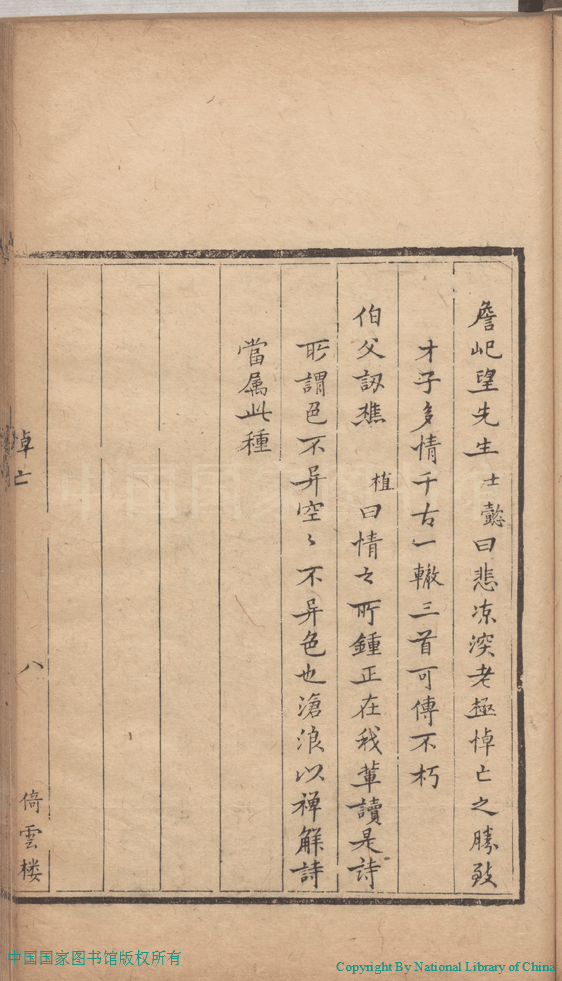 詹屺望先生士懿曰悲凉深老極悼亡之勝致
才子多情千古一轍三首可傳不朽
伯父訒樵植曰情之所鍾正在我輩讀是詩
所謂色不异空〻不异色也滄浪以禅解詩
當属此種
悼亡
八
倚雲楼
中国国家图书馆版权所有
Copyright By National Library of China